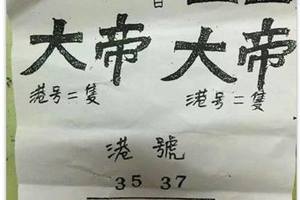 大帝 大帝
港号二隻 港号二隻
港號
35 37